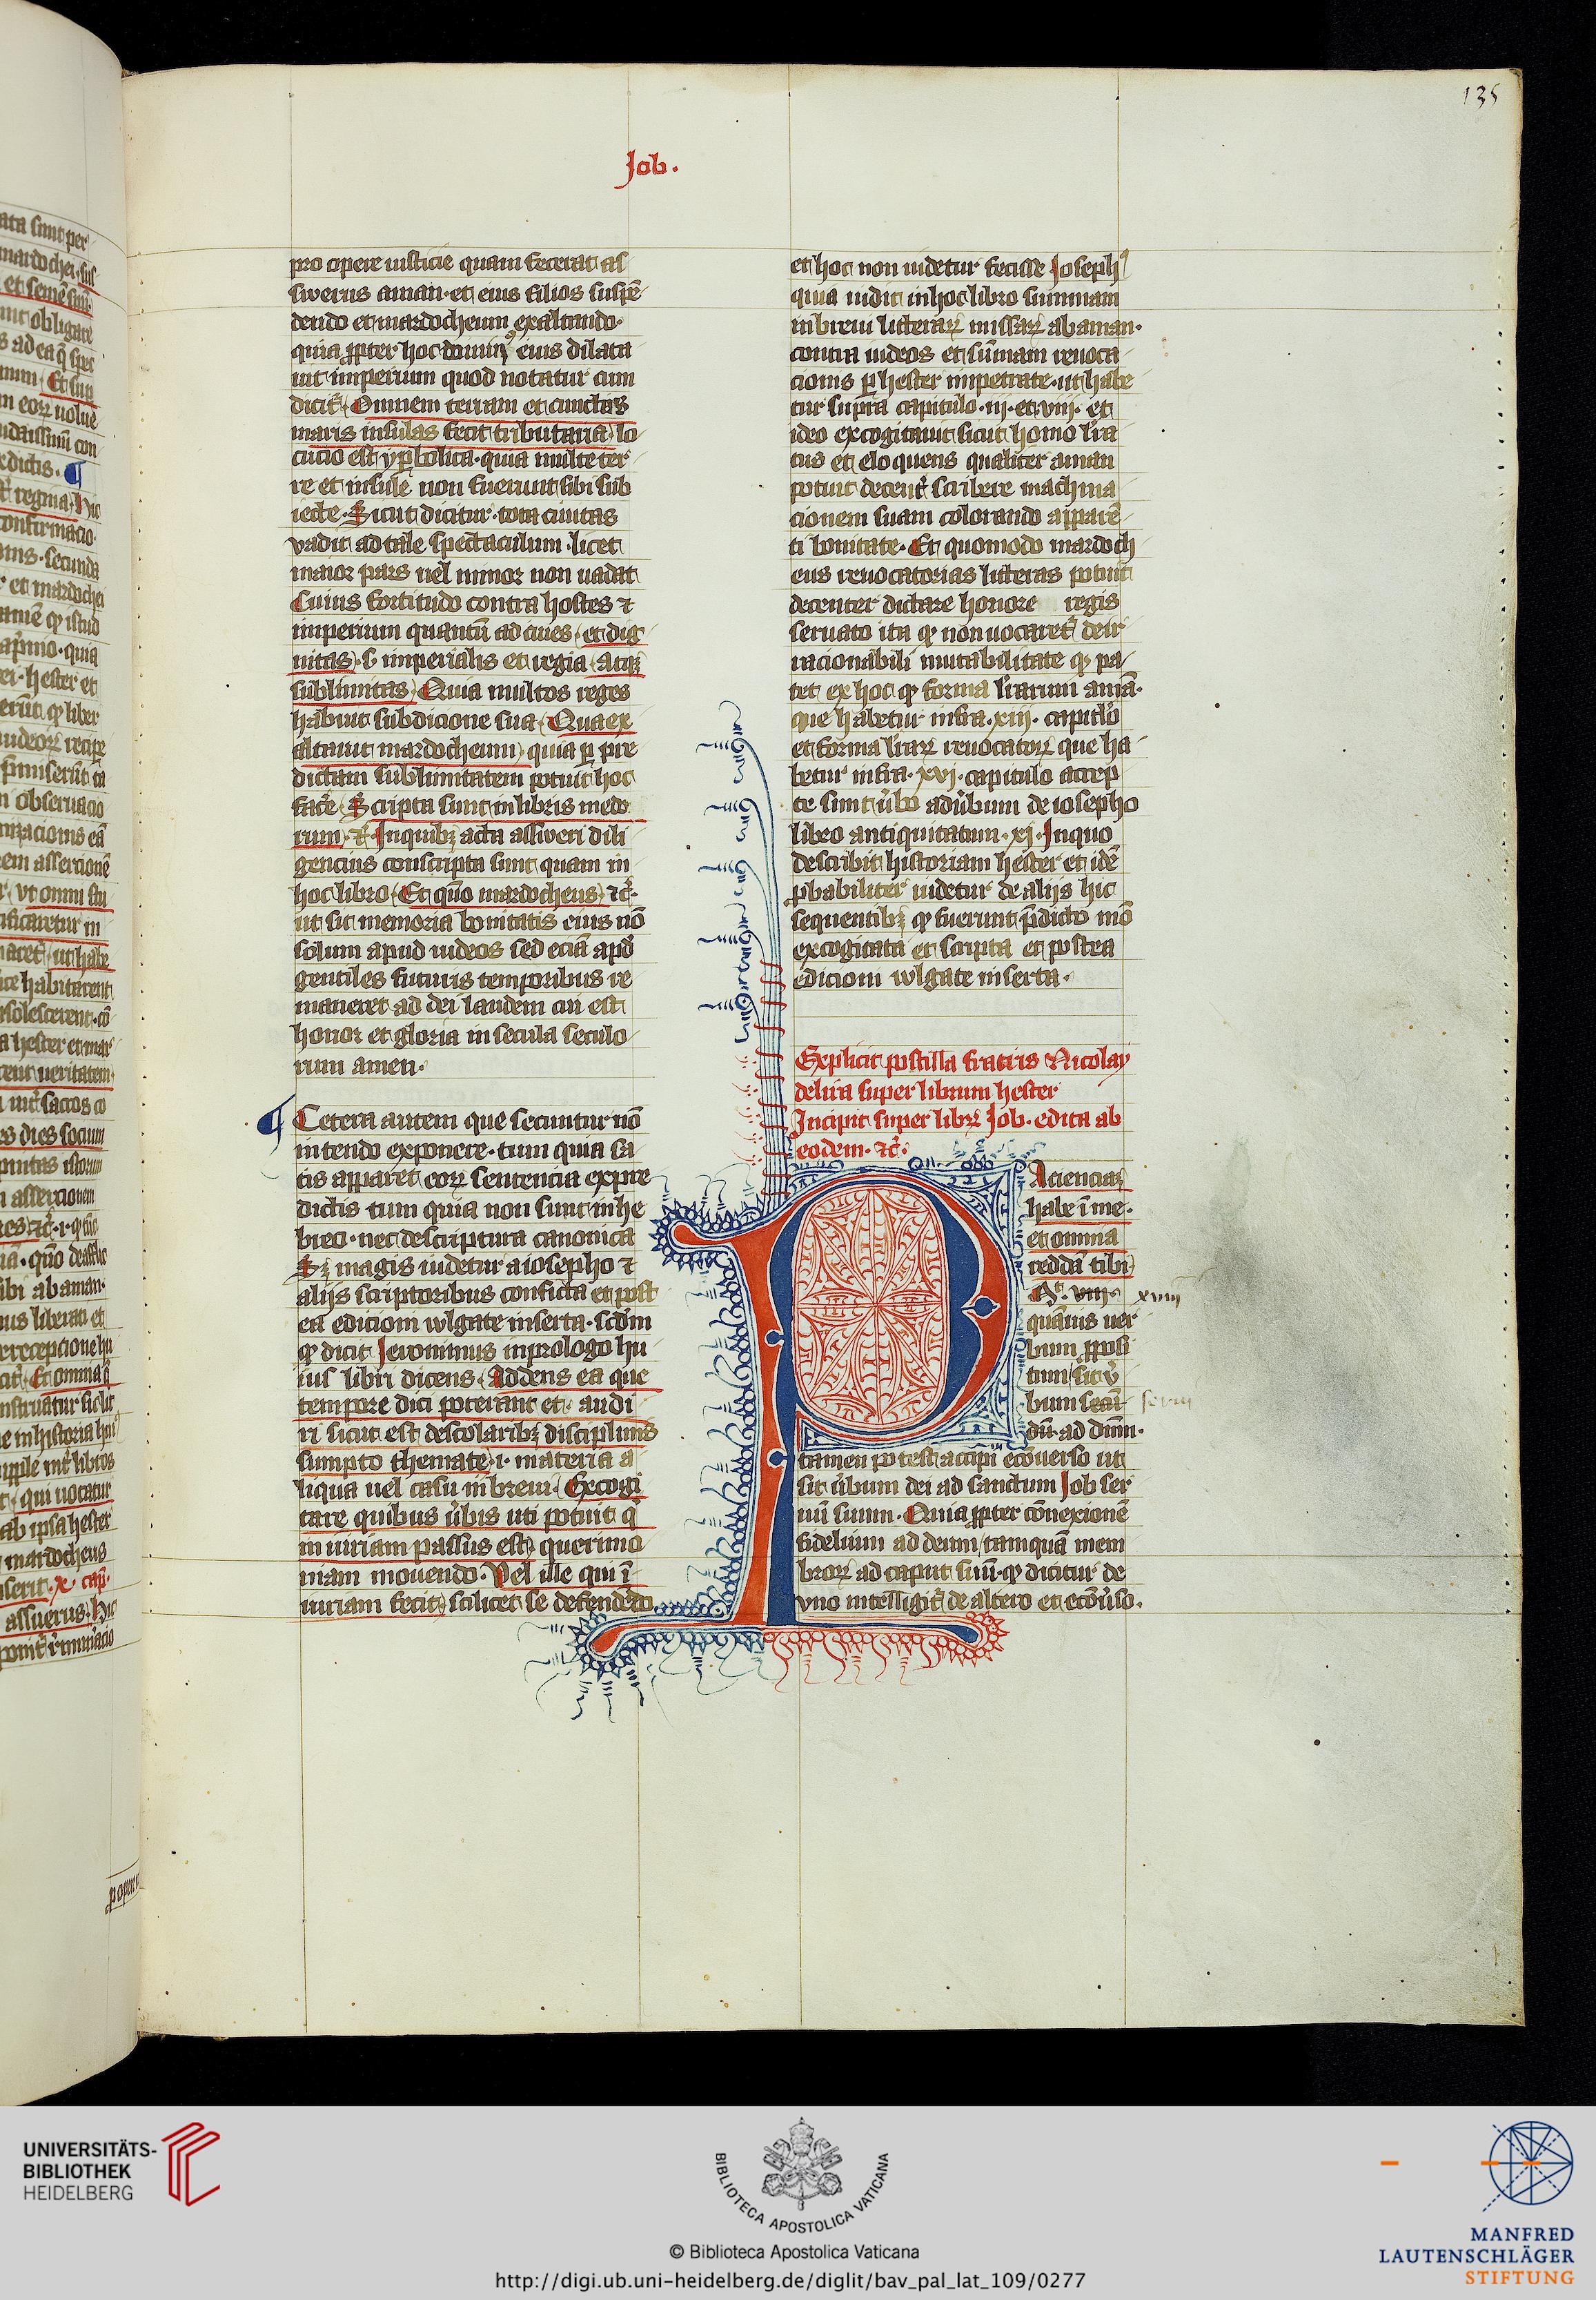 135
Job.
pro opere iusticie quam fecerat as
swerus aman· et eius filios suspē
dendo et mardocheum exaltando·
quia ꝓpter hoc dominꝰ eius dilata
uit imperium quod notatur cum
dicit̄· Omnem terram et cunctas
maris insulas fecit tributaria) lo
cucio est yꝑbolica· quia multe ter
re et insule non fuerunt sibi sub
iecte· Sicut dicitur· tota ciuitas
vadit ad tale spectaculum· licet
maior pars uel minor non uadat
Cuius fortitudo contra hostes ⁊
imperium quantū ad ciues· et dig
nitas)· s· imperialis et regia (atqꝫ
sublimitas) Quia multos reges
habuit sub dicione sua· (Qua ex
altauit mardocheum) quia ꝑ pre
dictam sublimitatem potuit hoc
fac̄e· Scripta sunt in libris medo
rum· ⁊c̄· In quibꝫ acta assweri dili
gencius conscripta sunt quam in
hoc libro· (Et quō mardocheus) ⁊c̄·
ut sit memoria bonitatis eius nō
solum apud iudeos sed eciā apd̄
gentiles futuris temporibus re
maneret ad dei laudem cui est
honor et gloria in secula seculo
rum amen·
¶ Cetera autem que secuntur nō
intendo exponere· tum quia sa
tis apparet eoꝝ sentencia ex pre
dictis tum quia non sunt in he
breo· nec de scriptura canonica
Sꝫ magis uidetur a iosepho ⁊
aliis scriptoribus conficta et post
ea edicioni wlgate inserta· scdm̄
qꝫ dicit Jeronimus in prologo hu
ius libri dicens· Addens ea que
tempore dici poterant et audi
ri sicut est de scolaribꝫ disciplinis
sumpto themate) ·i· materia a
liqua uel casu in breui· (Excogi
tare quibus ūbis uti potuit q̄
in iuriam passus est) querimo
niam mouendo· Vel ille qui ī
iuriam fecit) scilicet se defendēdo
et hoc non uidetur fecisse Josephꝰ
quia uidit in hoc libro summam
in breui litteraꝝ missaꝝ ab aman·
contra iudeos et sūmam reuoca
cionis ꝑ hester impetrate· ut habe
tur supra capitulo· iij· et viij· et
ideo excogitauit sicut homo lr̄a
tus et eloquens qualiter aman
potuit decent̄ scribere machina
cionem suam colorando apparē
ti bonitate· Et quomodo mardoch
eus reuocatorias litteras potuit
decenter dictare honore regis
seruato ita qꝫ non uocaret̄ de ir
racionabili mutabilitate qꝫ pa
tet ex hoc qꝫ forma lr̄arum amā·
que habetur infra· xiij· capitl̄o
et forma lr̄aꝝ reuocatoꝝ que ha
betur infra· xvj· capitulo accep
te sunt ūbo ad ūbum de iosepho
libro antiquitatum· xj· In quo
describit historiam hester et idē
ꝓbabiliter uidetur de aliis hic
sequentibꝫ qꝫ fuerunt p̄dicto mō
excogitata et scripta et postea
edicioni wlgate inserta·
Explicit postilla fratris Nicolay
de lira super librum hester
Incipit super libꝝ Job· edita ab
eodem· ⁊c̄·
PAcienciaꝫ
habe ī me·
et omnia
reddā tibi)
xviij
quāuis uer
bum ꝓposi
tum sit ū
bum
dū· ad dūm·
tamen potest accipi ecōuerso ut
sit ūbum dei ad sanctum Job ser
uū suum· Quia ꝓpter cōnexionē
fidelium ad deum tamquā mem
broꝝ ad caput suū· qꝫ dicitur de
vno intelligit̄ de altero et ecōūso·
UNIVERSITÄTS-
BIBLIOTHEK
HEIDELBERG
BIBLIOTECA APOSTOLICA VATICANA
© Biblioteca Apostolica Vaticana
http://digi.ub.uni-heidelberg.de/diglit/bav_pal_lat_109/0277
MANFRED
LAUTENSCHLÄGER
STIFTUNG